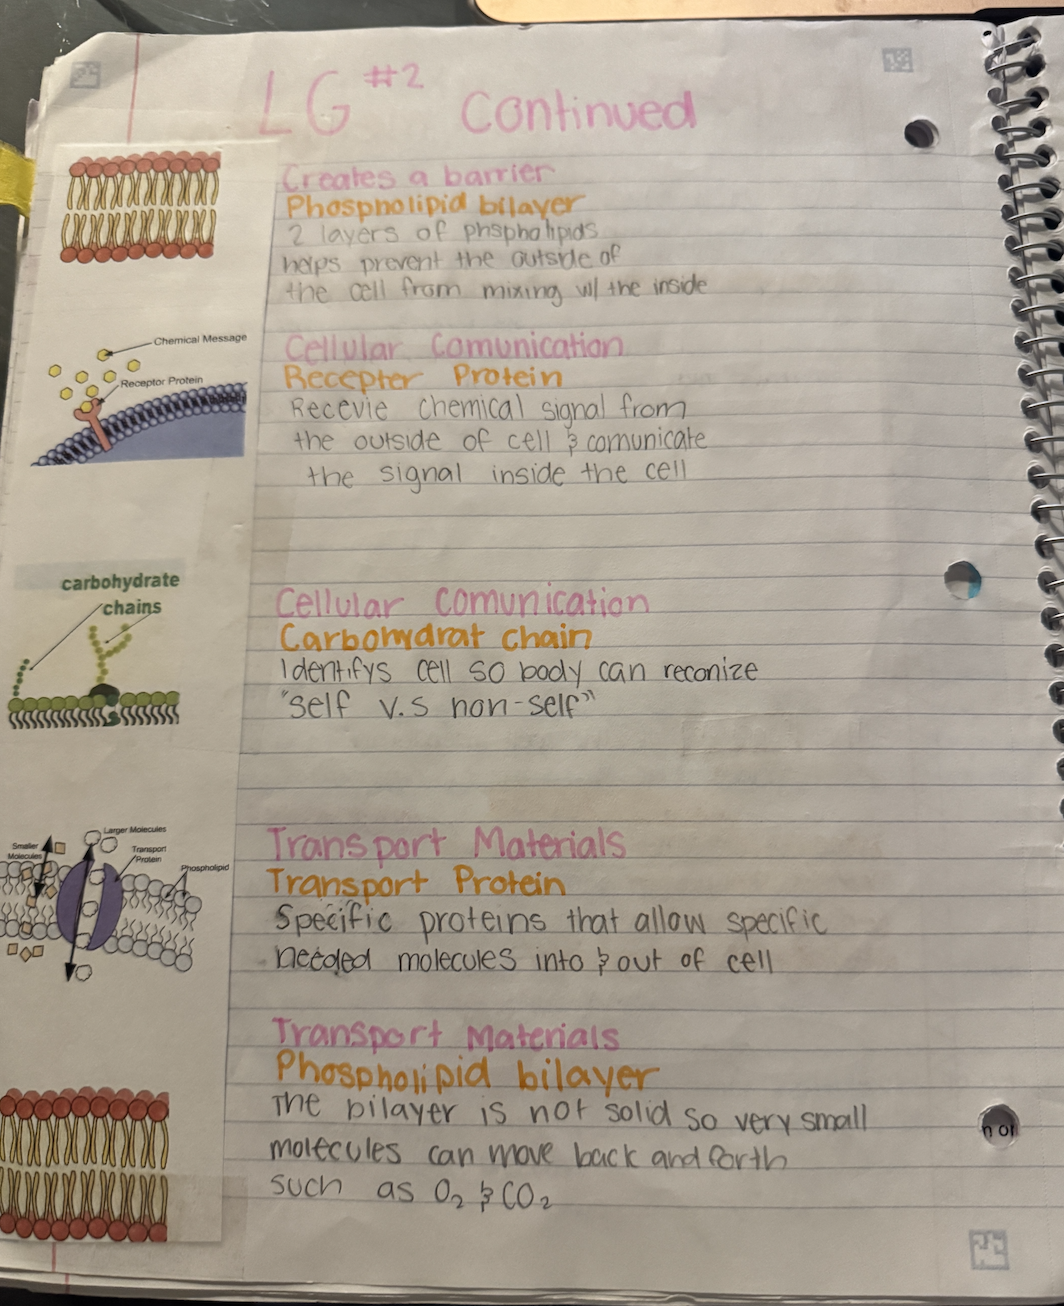 LG #2 Continued
Creates a barrier
Phospholipid bilayer
2 layers of phspholipids
helps prevent the outside of
the cell from mixing w/ the inside
Chemical Message
Receptor Protein
Cellular Comunication
Recepter Protein
Recevie chemical signal from
the outside of cell & comunicate
the signal inside the cell
carbohydrate
chains
Cellular Comunication
Carbohydrat chain
Identifys cell so body can reconize
"self v.s non-self"
Larger Molecules
Smaller
Molecules
Transport
Protein
Phospholipid
Transport Materials
Transport Protein
Specific proteins that allow specific
needed molecules into & out of cell
Transport Materials
Phospholipid bilayer
The bilayer is not solid so very small
molecules can move back and forth
such as O₂ & CO₂